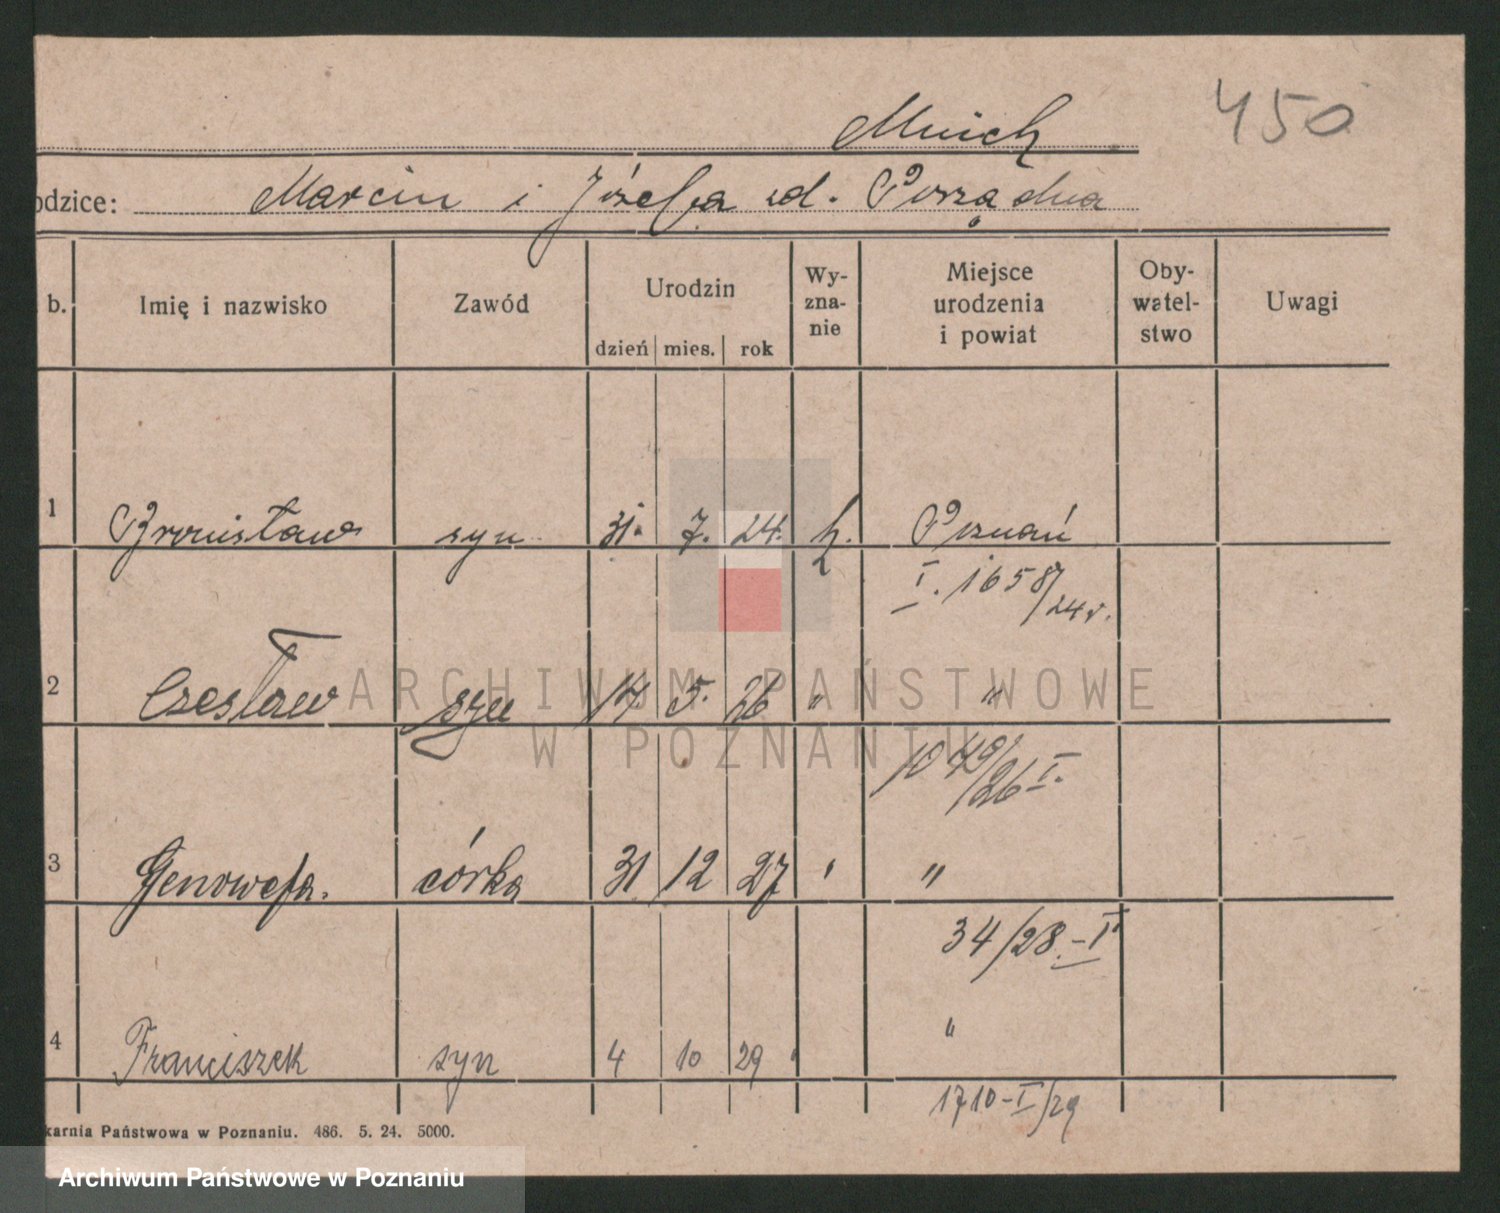 450
Mnich
odzice: Marcin i Józefa ud. Porządna
b. Imię i nazwisko Zawód Urodzin Wy- Miejsce Oby- Uwagi
zna- urodzenia watel-
nie i powiat stwo
dzień mies. rok
1 Bronisław syn 31. 7. 24. k. Poznań
I. 1658/24 r.
2 Czesław syn 14. 5. 26 " "
1049/26 I.
3 Genowefa. córka 31 12 27 " "
34/28.-I
4 Franciszek syn 4 10 29 "
1710-I/29
karnia Państwowa w Poznaniu. 486. 5. 24. 5000.
ARCHIWUM PAŃSTWOWE
W POZNANIU
Archiwum Państwowe w Poznaniu